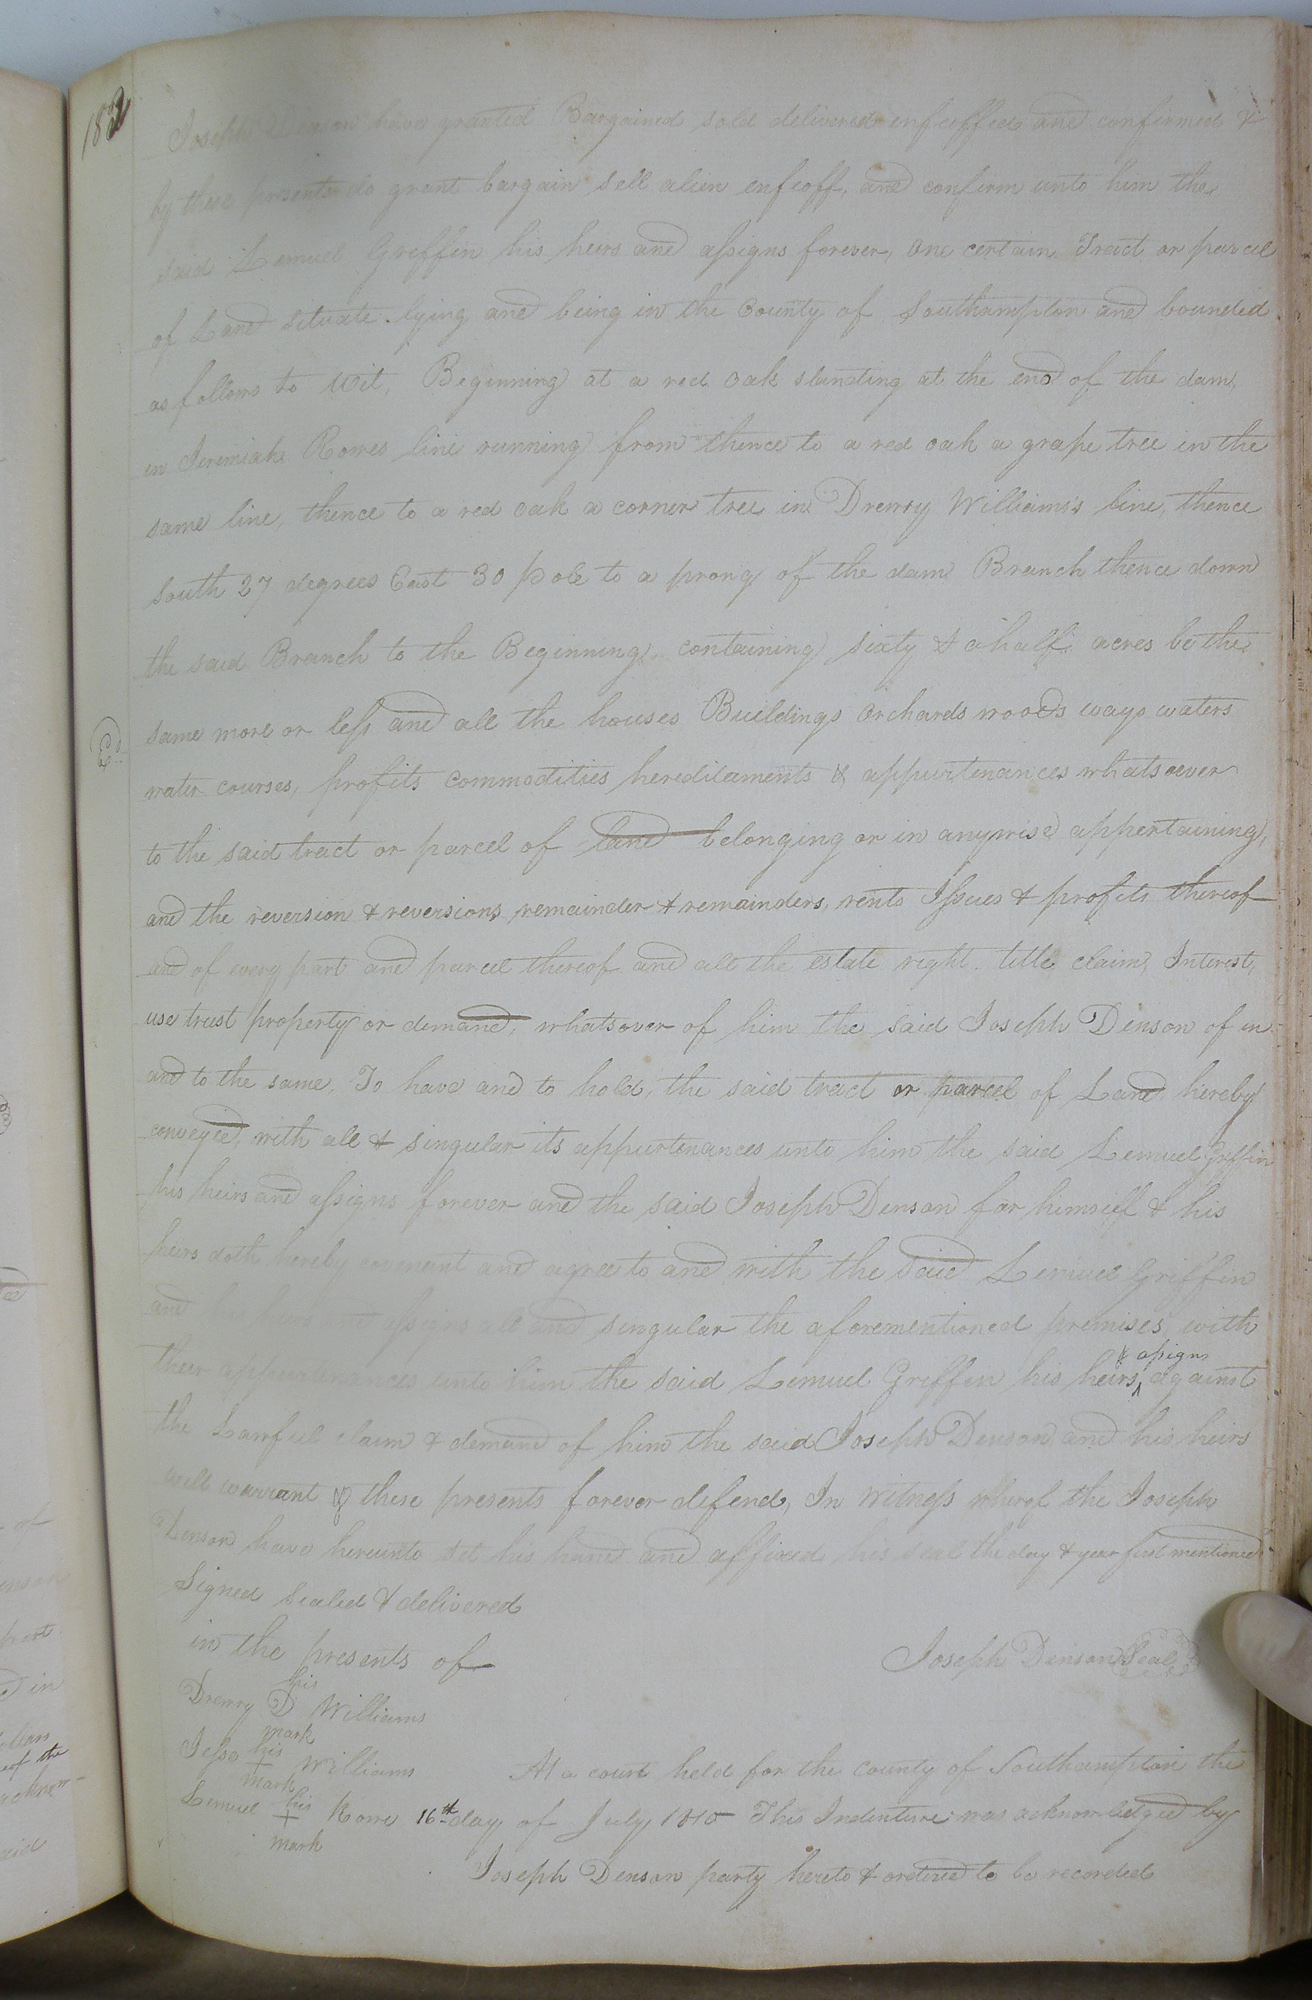 182
Joseph Denson have granted Bargained sold delivered enfeoffed and confirmed &
by these presents do grant bargain sell alien enfeoff, and confirm unto him the
said Lemuel Griffin his heirs and assigns forever, one certain Tract or parcel
of Land situate lying and being in the County of Southampton and bounded
as follows to Wit, Beginning at a red Oak standing at the end of the dam
in Jeremiah Rowes line running from thence to a red oak a grape tree in the
same line, thence to a red oak a corner tree in Drewry Williams's line, thence
South 27 degrees East 30 pole to a prong of the dam Branch thence down
the said Branch to the Beginning, containing sixty & a half acres be the
same more or less and all the houses Buildings Orchards woods ways waters
water courses, profits commodities hereditaments & appurtenances whatsoever
to the said tract or parcel of land belonging or in anywise appertaining,
and the reversion & reversions, remainder & remainders, rents Issues & profits thereof
and of every part and parcel thereof and all the estate right title claim, Interest,
use trust property or demand, whatsover of him the said Joseph Denson of in
and to the same. To have and to hold, the said tract or parcel of Land hereby
conveyed, with all & singular its appurtenances unto him the said Lemuel Griffin
his heirs and assigns forever and the said Joseph Denson for himself & his
heirs doth hereby covenant and agree to and with the said Lemuel Griffin
and his heirs and assigns all and singular the aforementioned premises with
their appurtenances unto him the said Lemuel Griffin his heirs & assigns against
the Lawful claim & demand of him the said Joseph Denson and his heirs
will warrant & these presents forever defend, In Witness whereof the Joseph
Denson have hereunto set his hand and affixed his seal the day & year first mentioned
Signed sealed & delivered
in the presents of
Joseph Denson Seal
his
Drewry D Williams
mark
his
Jesse + Williams
mark
At a court held for the county of Southampton the
his
Lemuel + Rowe
mark
16th day of July 1810 This Indenture was acknowledged by
Joseph Denson party hereto & ordered to be recorded